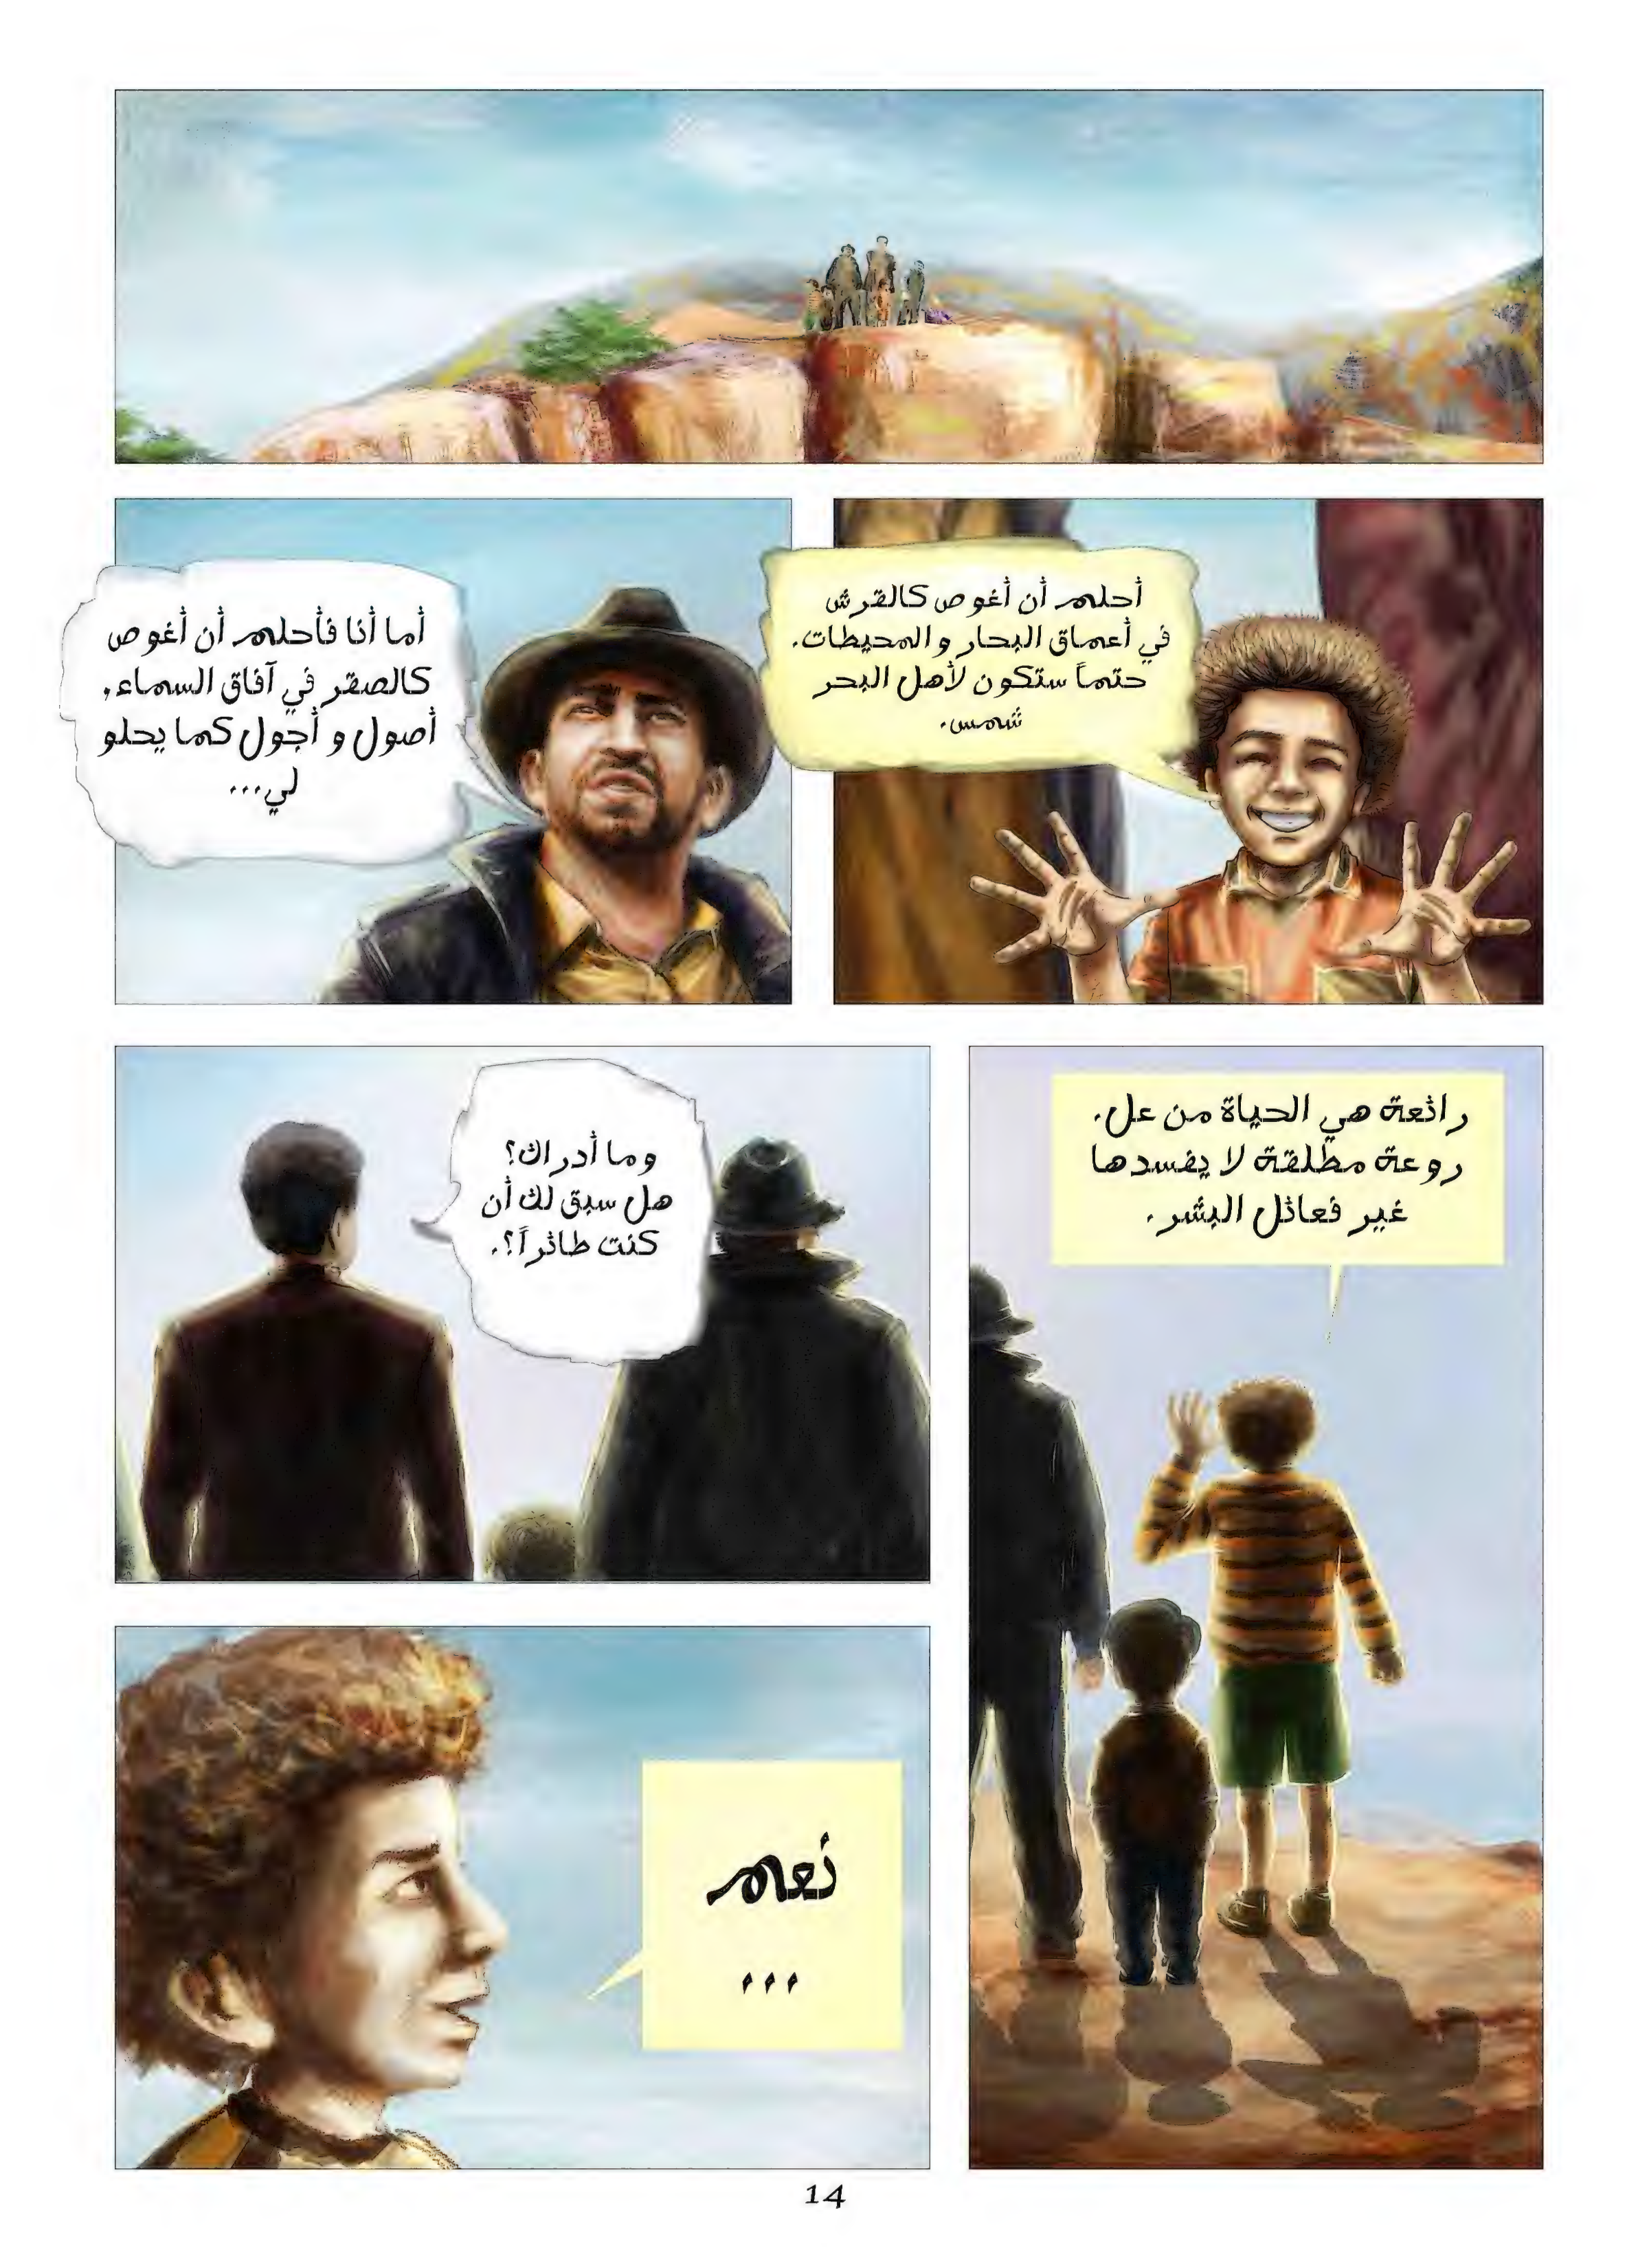 أحلم أن أغوص كالقرش
في أعماق البحار والمحيطات.
حتماً ستكون لأهل البحر
شمس.
أما أنا فأحلم أن أغوص
كالصقر في آفاق السماء،
أصول و أجول كما يحلو
لي...
رائعة هي الحياة من عل.
روعة مطلقة لا يفسدها
غير فعائل البشر.
وما أدراك؟
هل سبق لك أن
كنت طائراً؟.
نعم
...
14